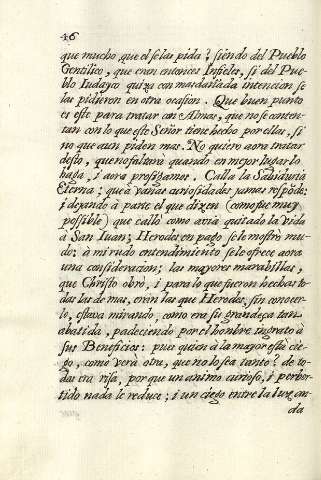 46
que mucho, que el se las pida? siendo del Pueblo
Gentilico, que eran entonces Infieles, si del Pue-
blo Iudayco quiza con mas dañada intencion se
las pidieron en otra ocasion. Que buen punto
es este para tratar con Almas, que no se conten-
tan con lo que este Señor tiene hecho por ellas, si
no que aun piden mas. No quiero aora tratar
desto, que no faltarà quando en mejor lugar lo
haga, i aora prosigamos. Calla la Sabiduria
Eterna; que à vanas curiosidades jamas respõde:
i dexando à parte el que dizen (como fue muy
possible) que callò como avia quitado la vida
à San Iuan; Herodes en pago se lo mostrò mu-
do; à mi rudo entendimiento se le ofrece aora
una consideracion; las mayores marabillas,
que Christo obrò, i para lo que fueron hechas to-
das las de mas, eren las que Herodes, sin conocer-
lo, estava mirando, como era su grandeça tan
abatida, padeciendo por el hombre ingrato à
sus Beneficios: pues quien à la mayor està cie-
go, como verà otra, que no lo sea tanto? de to-
das era risa, porque un animo curioso, i perber-
tido nada le reduce; i un ciego entre la luz an-
da